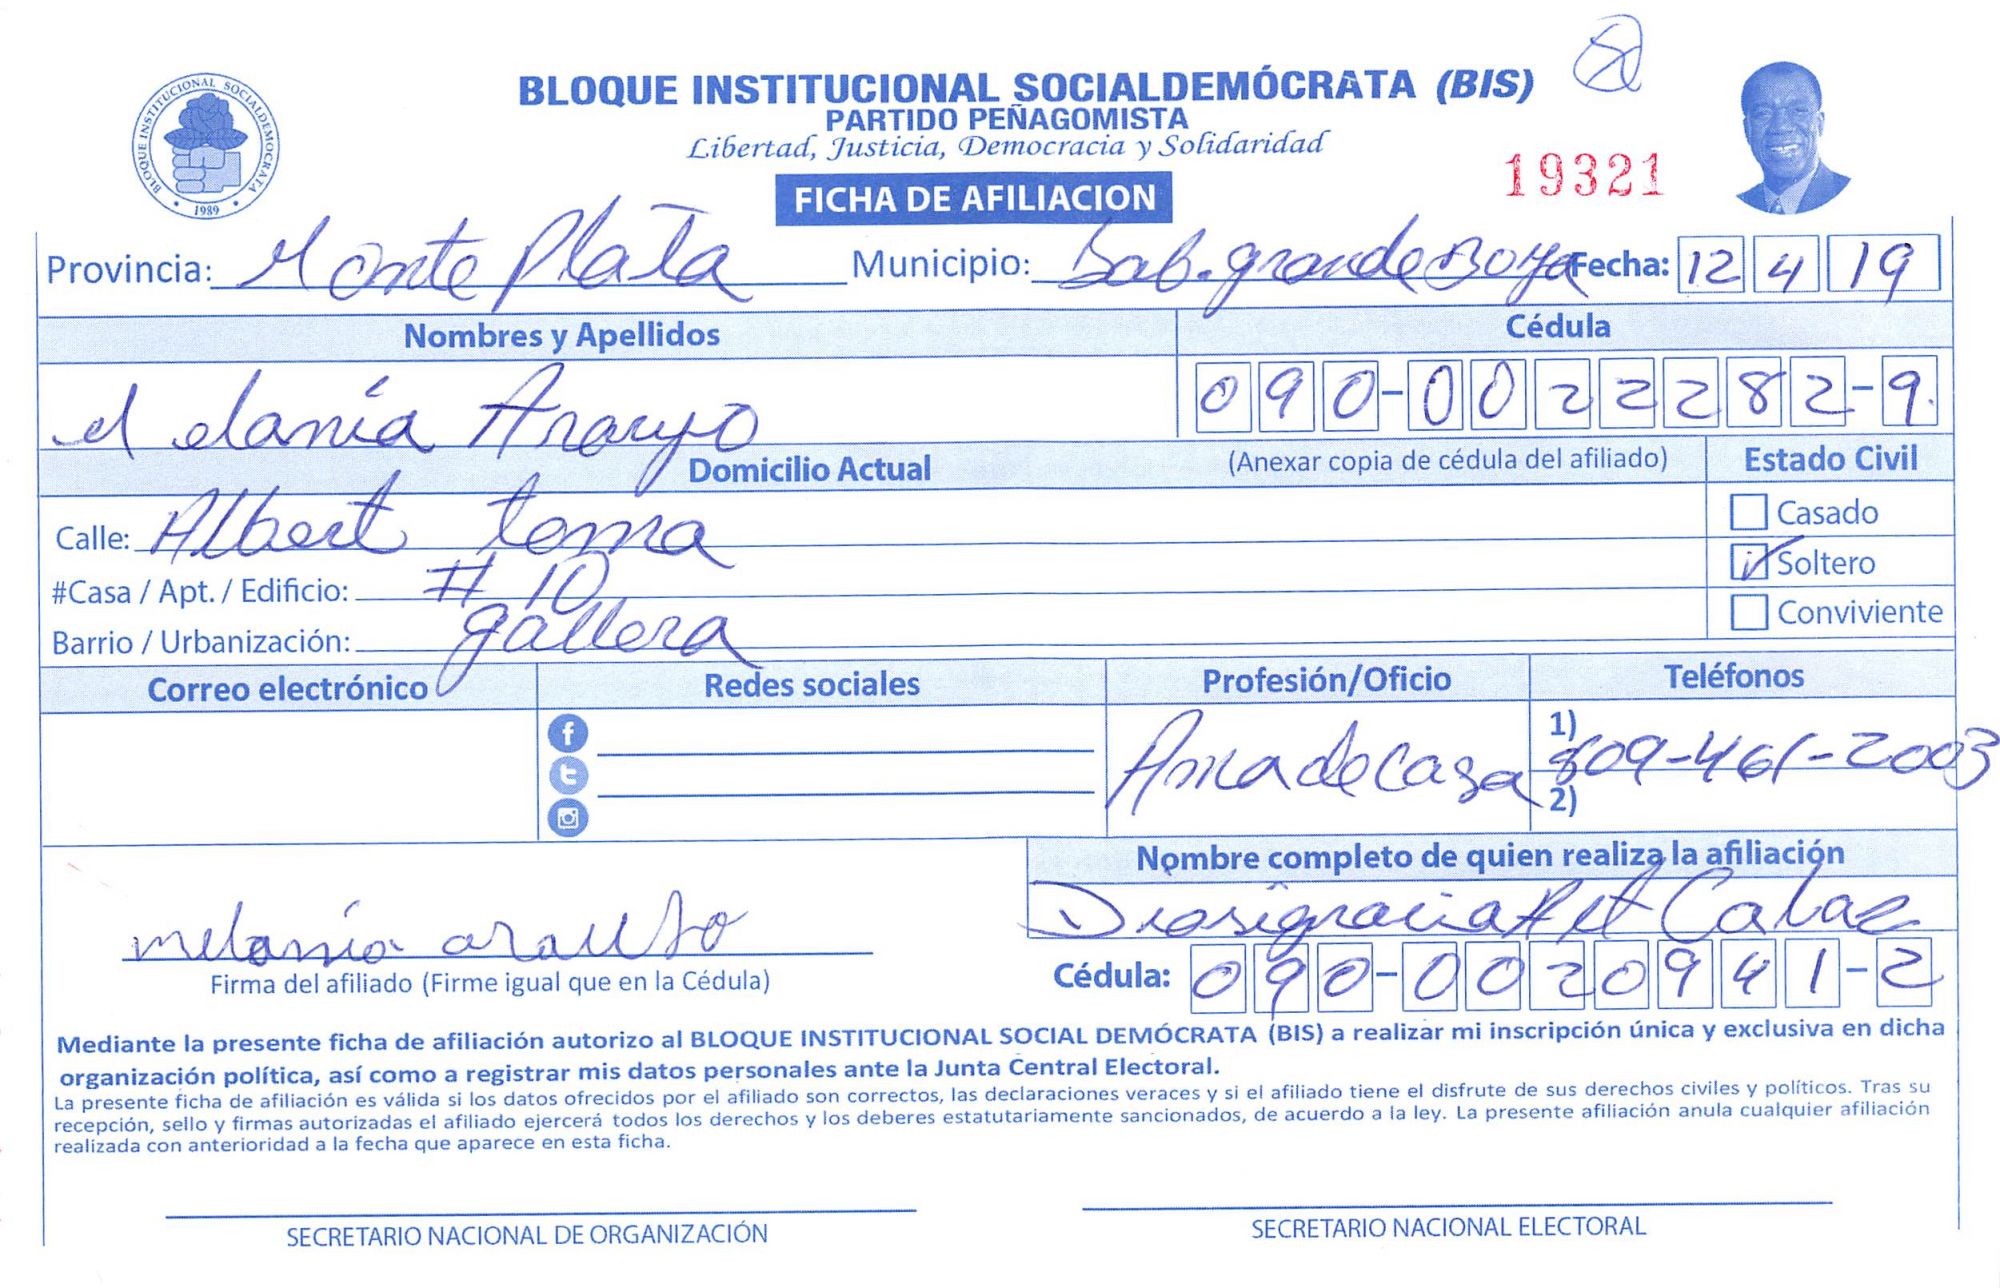 BLOQUE INSTITUCIONAL SOCIALDEMÓCRATA (BIS)
PARTIDO PEÑAGOMISTA
Libertad, Justicia, Democracia y Solidaridad
BLOQUE INSTITUCIONAL SOCIALDEMOCRATA
1989
19321
FICHA DE AFILIACION
Provincia: Monte Plata Municipio: Sab. grande Boya Fecha: 12 4 19
Nombres y Apellidos Cédula
Melania Araujo 090-0022282-9
Domicilio Actual (Anexar copia de cédula del afiliado) Estado Civil
Calle: Albert toma Casado
#Casa / Apt. / Edificio: # 10 Soltero
Barrio / Urbanización: gallera Conviviente
Correo electrónico Redes sociales Profesión/Oficio Teléfonos
Ama de casa 1) 809-461-2003
2)
Nombre completo de quien realiza la afiliación
melania
Firma del afiliado (Firme igual que en la Cédula)
Cédula: 090-0020941-2
Mediante la presente ficha de afiliación autorizo al BLOQUE INSTITUCIONAL SOCIAL DEMÓCRATA (BIS) a realizar mi inscripción única y exclusiva en dicha
organización política, así como a registrar mis datos personales ante la Junta Central Electoral.
La presente ficha de afiliación es válida si los datos ofrecidos por el afiliado son correctos, las declaraciones veraces y si el afiliado tiene el disfrute de sus derechos civiles y políticos. Tras su
recepción, sello y firmas autorizadas el afiliado ejercerá todos los derechos y los deberes estatutariamente sancionados, de acuerdo a la ley. La presente afiliación anula cualquier afiliación
realizada con anterioridad a la fecha que aparece en esta ficha.
SECRETARIO NACIONAL DE ORGANIZACIÓN SECRETARIO NACIONAL ELECTORAL